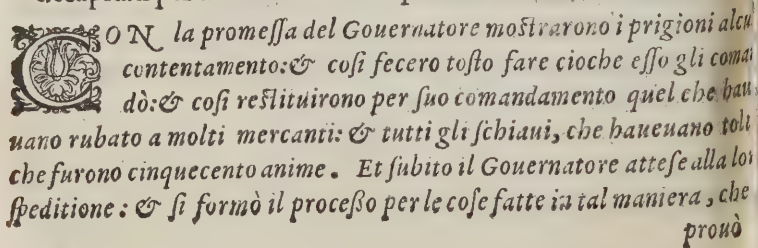 CON la promessa del Gouernatore mostrarono i prigioni alcu
contentamento: & cosi fecero tosto fare cioche esso gli coman
dò: & cosi restituirono per suo comandamento quel che hau
uano rubato a molti mercanti: & tutti gli schiaui, che haueuano tolt
che furono cinquecento anime. Et subito il Gouernatore attese alla lor
speditione: & si formò il processo per le cose fatte in tal maniera, che
prouò